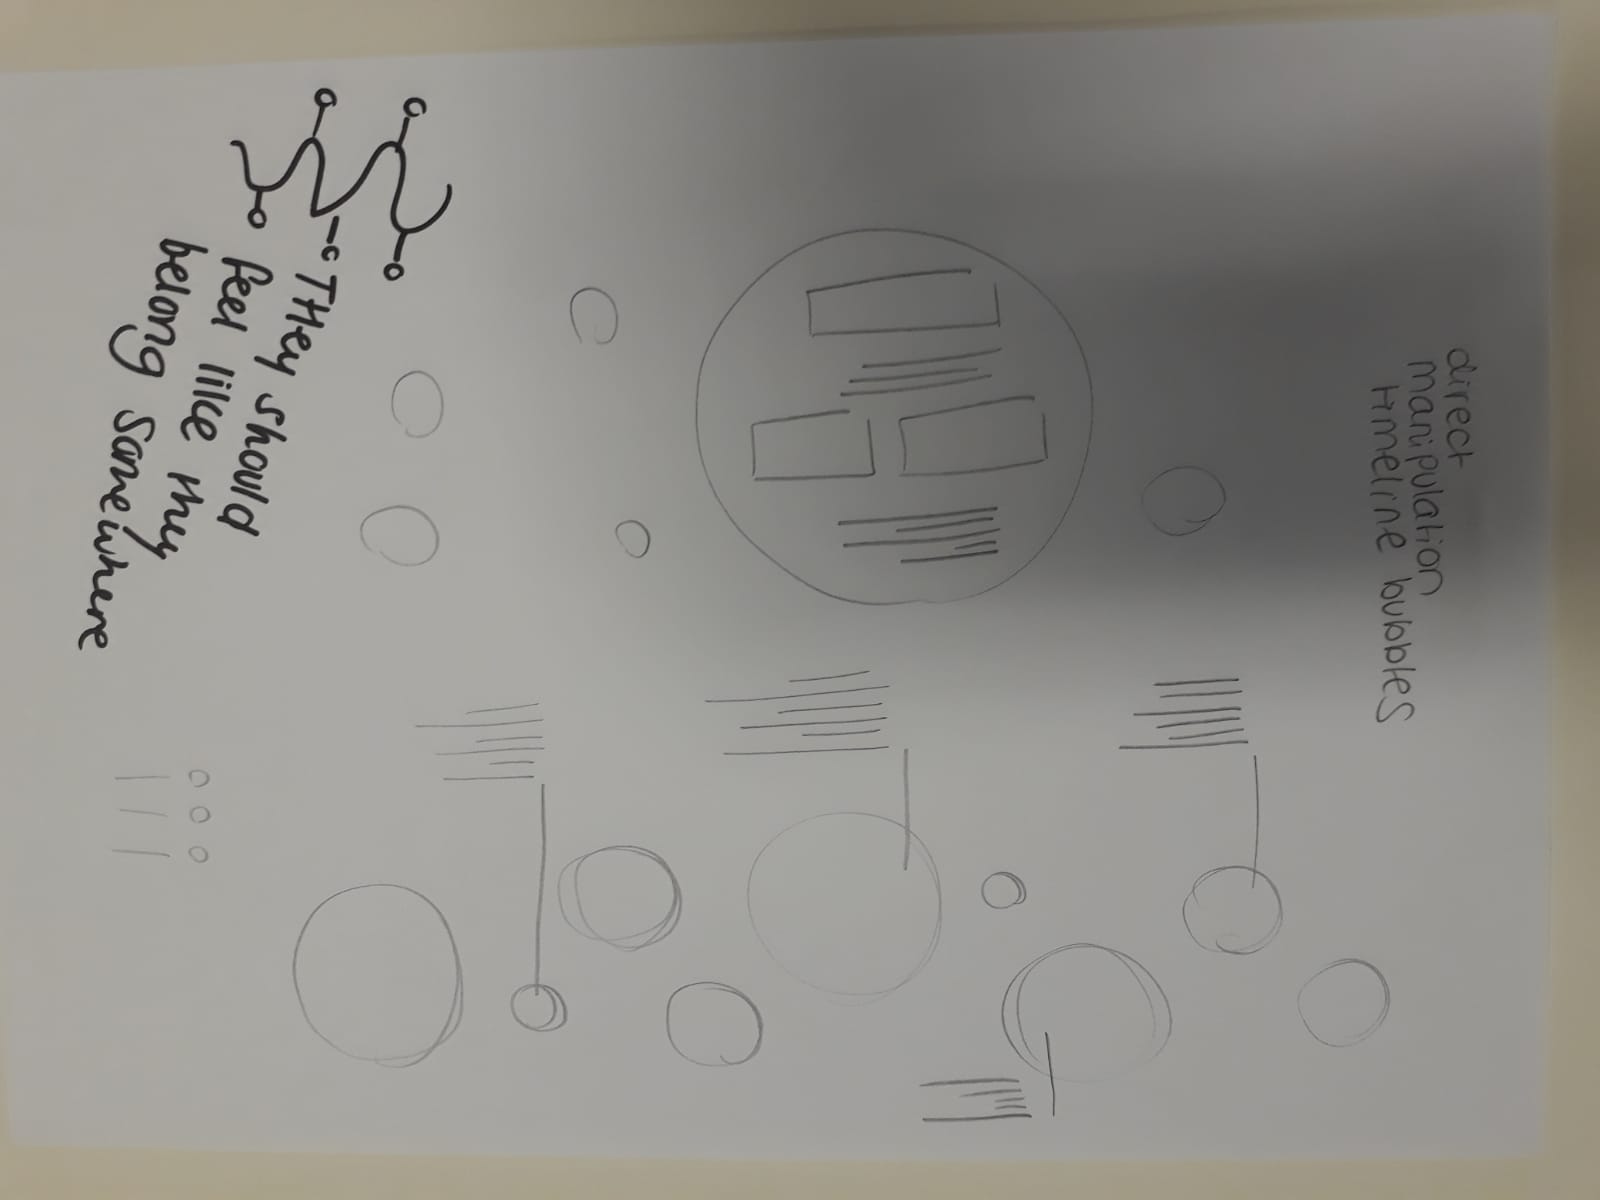 direct
manipulation
timeline bubbles
THey should
feel like they
belong somewhere